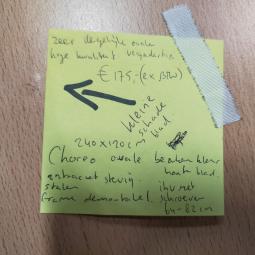 zeer degelijke ovale
hoge kwaliteit vergadertafel
€ 175,- (ex BTW)
kleine
schade
blad.
240 x 120 cm
Choreo ovale beuken kleur
hout blad.
antraciet stevig
stalen
frame demontabel
met
schroeven
64-82 cm